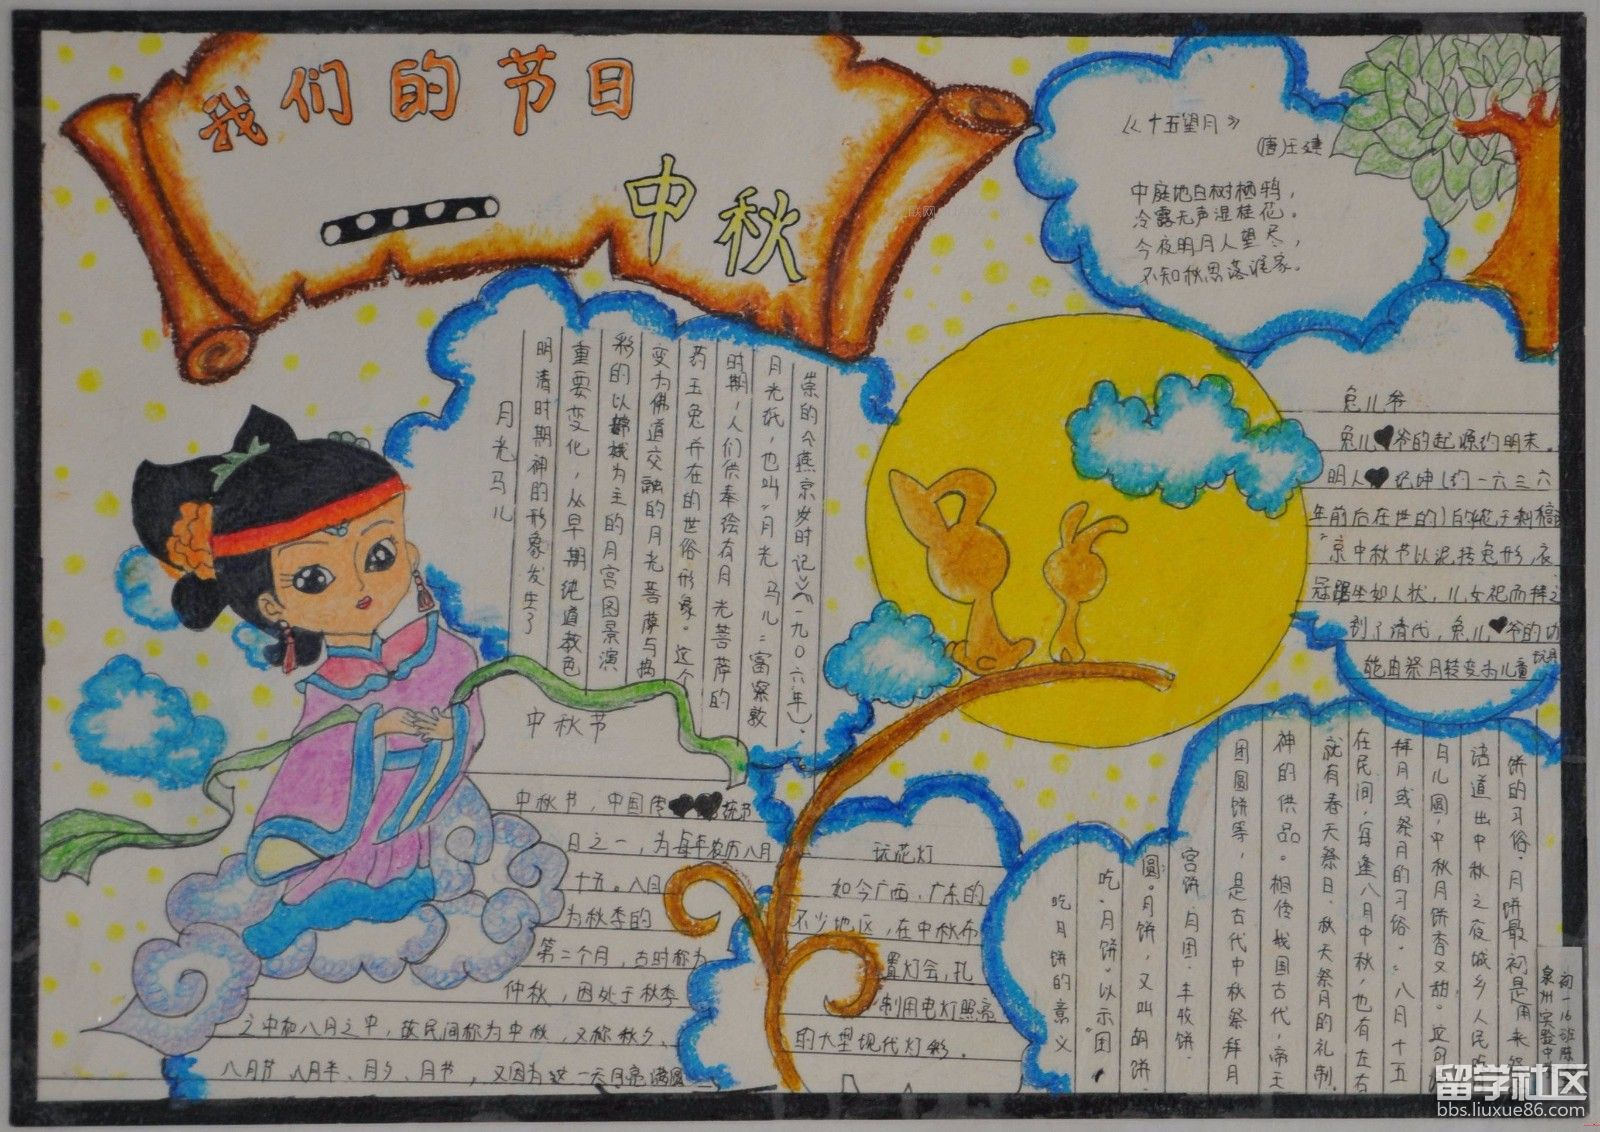 我们的节日
中秋
《十五望月》
(唐)王建
中庭地白树栖鸦，
冷露无声湿桂花。
今夜明月人望尽，
不知秋思落谁家。
月光马儿
明清时期神的形象发生了
重要变化，从早期纯道教色
彩的以嫦娥为主的月宫图景演
变为佛道交融的月光菩萨与捣
药玉兔并在的世俗形象。这个
时期，人们供奉绘有月光菩萨的
月光纸，也叫"月光马儿"富察敦
崇的《燕京岁时记》(一九〇六年)、
兔儿爷
兔儿爷的起源约明末。
明人纪坤(约一六三六
年前后在世的)的
京中秋节以泥抟兔形，衣
冠踞坐如人状，儿女祀而拜之
到了清代，兔儿爷的功
能由祭月转变为儿童
玩具
中秋节
中秋节，中国传统节
日之一，为每年农历八月
十五。八月
为秋季的
第二个月，古时称为
仲秋，因处于秋季
之中和八月之中，故民间称为中秋，又称秋夕、
八月节、八月半、月夕、月节，又因为这一天月亮满圆
玩花灯
如今广西、广东的
不少地区，在中秋布
置灯会，扎
制用电灯照亮
的大型现代灯彩。
吃月饼的意义
吃"月饼"以示"团
圆"。月饼，又叫胡饼、
宫饼、月团、丰收饼、
团圆饼等，是古代中秋祭拜月
神的供品。相传我国古代，帝王
就有春天祭日、秋天祭月的礼制。
在民间，每逢八月中秋，也有左右
拜月或祭月的习俗。"八月十五
月儿圆，中秋月饼香又甜"。这句
话道出中秋之夜城乡人民吃
饼的习俗。月饼最初是用来祭
初一16班陈
泉州实验中
留学社区
bbs.liuxue86.com